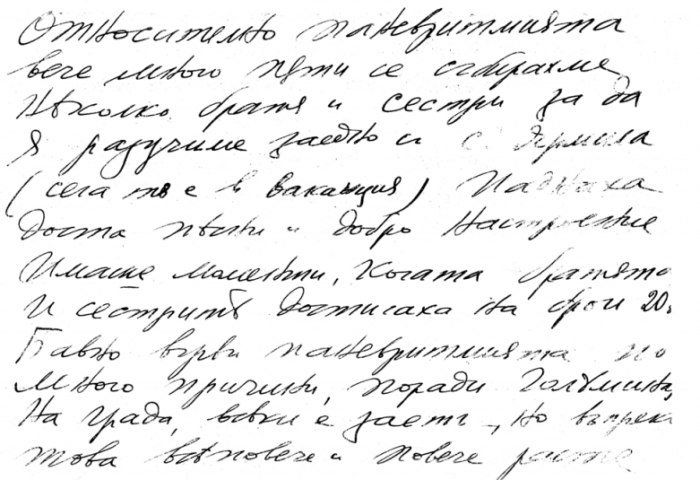 Относително паневритмията
вече много пѫти се събирахме
Нѣколко братя и сестри за да
я разучиме заедно и с. Ярмила
(сега тя е в ваканция) Паднаха
доста пѣсни и добро настроение
Имаше моменти, когато братята
и сестритѣ достигаха на брои 20.
Бавно върви паневритмията по
много причини, поради големина
на града, всѣки е заетъ, но въпреки
това всѐповече и повече расте